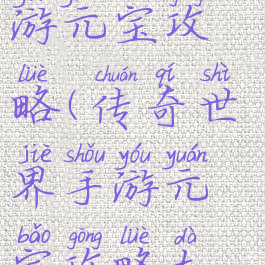 游元宝攻
lüè chuán qí shì
略(传奇世
jiè shǒu yóu yuán
界手游元
bǎo gōng lüè dà
宝攻略大